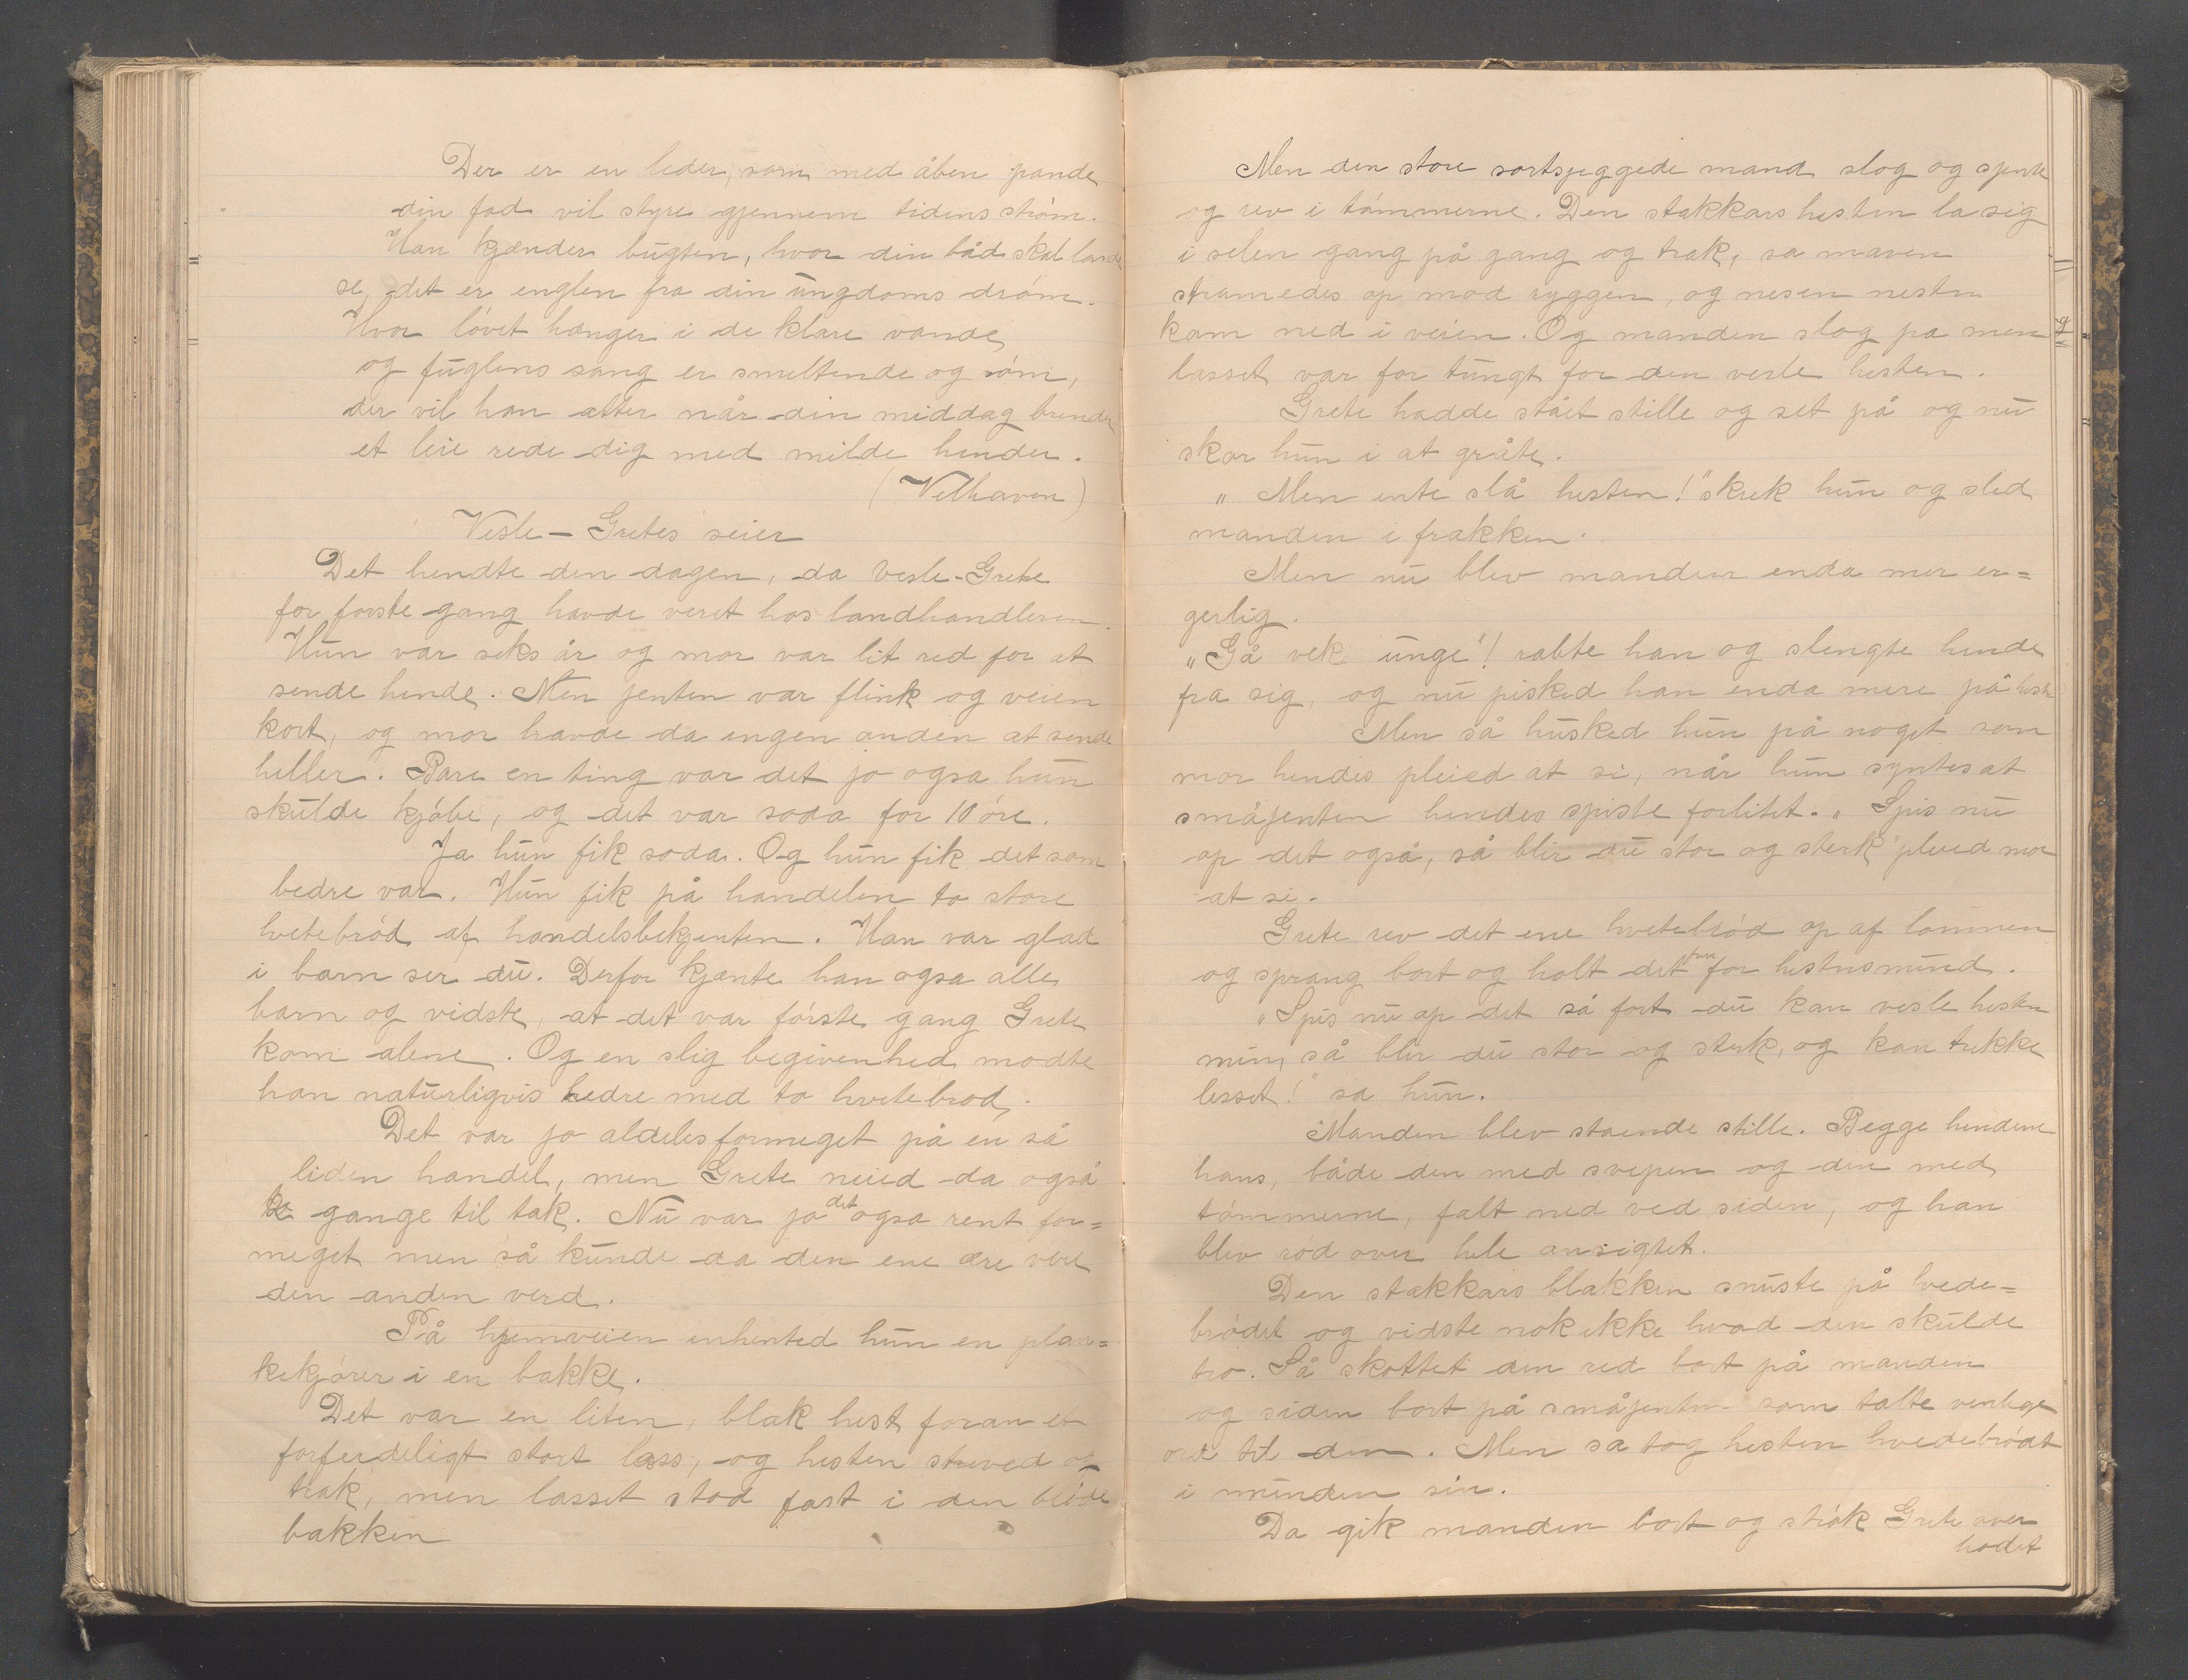 Der er en leder, som med åben pande
din fod vil styre gjennem tidens strøm.
Han kjender bugten, hvor din båd skal lande
se, det er englen fra din ungdoms drøm.
Hvor løvet hænger i de klare vande
og fuglens sang er smeltende og øm,
der vil han atter når din middag brender
et leie rede dig med milde hender.
(Velhaven)
Vesle-Gretes seier
Det hendte den dagen, da Vesle-Grete
for forste gang havde veret hos landhandleren.
Hun var seks år og mor var lit red for at
sende hende. Men jenten var flink og veien
kort, og mor havde da ingen anden at sende
heller. Bare en ting var det jo ogsa hun
skulde kjøbe, og det var soda for 10 øre.
Ja hun fik soda. Og hun fik det som
bedre var. Hun fik på handelen to store
hvetebrød af handelsbetjenten. Han var glad
i barn ser du. Derfor kjente han ogsa alle
barn og vidste, at det var første gang Grete
kom alene. Og en slig begivenhed modte
han naturligvis hedre med to hvetebrod.
Det var jo aldeles formeget på en så
liden handel, men Grete neied da også
to gange til tak. Nu var jo det ogsa rent for=
meget men så kunde da den ene ære vere
den anden verd.
På hjemveien inhented hun en plan=
kekjører i en bakke.
Det var en liten, blak hest foran et
forferdeligt stort lass, og hesten streved og
trak, men lasset stod fast i den bløde
bakken
Men den store sortsjeggede mand slog og spente
og rev i tømmerne. Den stakkars hesten la sig
i selen gang på gang og trak, sa maven
stramedes op mod ryggen, og nesen nesten
kom ned i veien. Og manden slog pa men
lasset var for tungt for den vesle hesten.
Grete hadde stået stille og set på og nu
skar hun i at gråte.
"Men ente slå hesten!" skrek hun og sled
manden i frakken.
Men nu blev manden enda mer er=
gerlig.
"Gå vek unge"! rabte han og slengte hende
fra sig, og nu pisked han enda mere på hesten
Men så husked hun på noget som
mor hendes pleied at si, når hun syntes at
småjenten hendes spiste forlitet. "Spis nu
op det også, så blir du stor og sterk" pleied mor
at si.
Grete rev det ene hvetebrød op af lommen
og sprang bort og holt det for hestens mund.
"Spis nu op det så fort du kan vesle hesten
min, så blir du stor og sterk, og kan trekke
lesset!" sa hun.
Manden blev stoende stille. Begge hendene
hans, både den med svepen og den med
tømmerne, falt ned ved siden, og han
blev rød over hele ansigtet.
Den stakkars blakken snuste på hvede=
brødet og vidste nok ikke hvad den skulde
tro. Så skottet den red bort på manden
og siden bort på småjenten som talte venlige
ord til den. Men sa tog hesten hvedebrødet
i munden sin.
Da gik manden bort og strøk Grete over
hodet